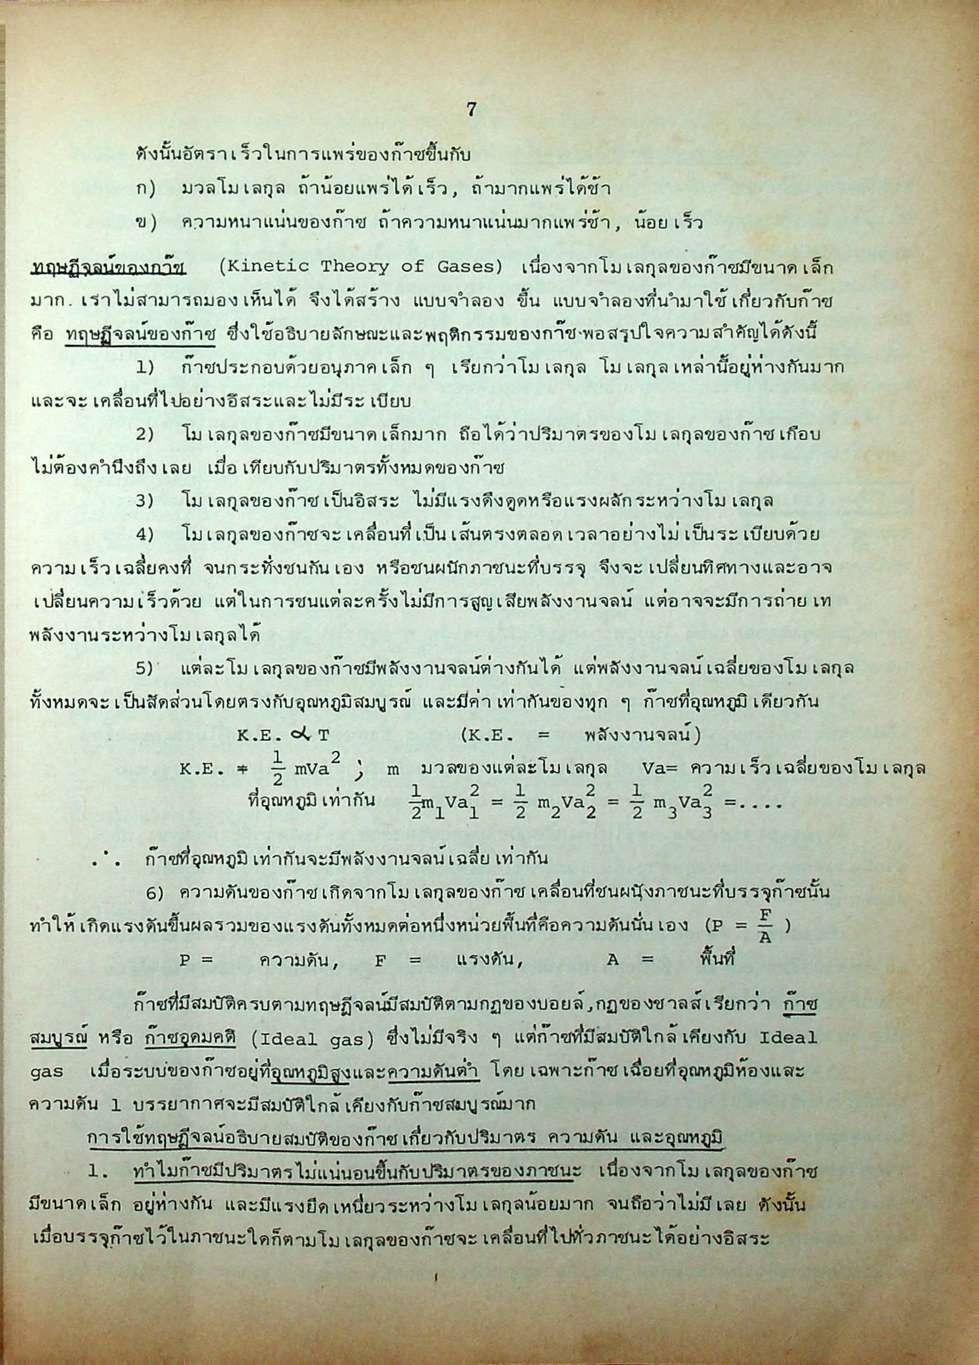 7
ดังนั้นอัตราเร็วในการแพร่ของก๊าซขึ้นกับ
ก) มวลโมเลกุล ถ้าน้อยแพร่ได้เร็ว, ถ้ามากแพร่ได้ช้า
ข) ความหนาแน่นของก๊าซ ถ้าความหนาแน่นมากแพร่ช้า, น้อยเร็ว
ทฤษฎีจลน์ของก๊าซ (Kinetic Theory of Gases) เนื่องจากโมเลกุลของก๊าซมีขนาดเล็ก
มาก. เราไม่สามารถมองเห็นได้ จึงได้สร้าง แบบจำลอง ขึ้น แบบจำลองที่นำมาใช้เกี่ยวกับก๊าซ
คือ ทฤษฎีจลน์ของก๊าซ ซึ่งใช้อธิบายลักษณะและพฤติกรรมของก๊าซพอสรุปใจความสำคัญได้ดังนี้
1) ก๊าซประกอบด้วยอนุภาคเล็ก ๆ เรียกว่าโมเลกุล โมเลกุลเหล่านี้อยู่ห่างกันมาก
และจะเคลื่อนที่ไปอย่างอิสระและไม่มีระเบียบ
2) โมเลกุลของก๊าซมีขนาดเล็กมาก ถือได้ว่าปริมาตรของโมเลกุลของก๊าซเกือบ
ไม่ต้องคำนึงถึงเลย เมื่อเทียบกับปริมาตรทั้งหมดของก๊าซ
3) โมเลกุลของก๊าซเป็นอิสระ ไม่มีแรงดึงดูดหรือแรงผลักระหว่างโมเลกุล
4) โมเลกุลของก๊าซจะเคลื่อนที่เป็นเส้นตรงตลอดเวลาอย่างไม่เป็นระเบียบด้วย
ความเร็วเฉลี่ยคงที่ จนกระทั่งชนกันเอง หรือชนผนักภาชนะที่บรรจุ จึงจะเปลี่ยนทิศทางและอาจ
เปลี่ยนความเร็วด้วย แต่ในการชนแต่ละครั้งไม่มีการสูญเสียพลังงานจลน์ แต่อาจจะมีการถ่ายเท
พลังงานระหว่างโมเลกุลได้
5) แต่ละโมเลกุลของก๊าซมีพลังงานจลน์ต่างกันได้ แต่พลังงานจลน์เฉลี่ยของโมเลกุล
ทั้งหมดจะเป็นสัดส่วนโดยตรงกับอุณหภูมิสมบูรณ์ และมีค่าเท่ากันของทุก ๆ ก๊าซที่อุณหภูมิเดียวกัน
K.E. ∝ T (K.E. = พลังงานจลน์)
K.E. = ½ mVa² ; m มวลของแต่ละโมเลกุล Va= ความเร็วเฉลี่ยของโมเลกุล
ที่อุณหภูมิเท่ากัน ½m₁Va₁² = ½ m₂Va₂² = ½ m₃Va₃² =....
∴ ก๊าซที่อุณหภูมิเท่ากันจะมีพลังงานจลน์เฉลี่ยเท่ากัน
6) ความดันของก๊าซเกิดจากโมเลกุลของก๊าซเคลื่อนที่ชนผนังภาชนะที่บรรจุก๊าซนั้น
ทำให้เกิดแรงดันขึ้นผลรวมของแรงดันทั้งหมดต่อหนึ่งหน่วยพื้นที่คือความดันนั่นเอง (P = F/A )
P = ความดัน, F = แรงดัน, A = พื้นที่
ก๊าซที่มีสมบัติครบตามทฤษฎีจลน์มีสมบัติตามกฎของบอยล์,กฎของชาลส์เรียกว่า ก๊าซ
สมบูรณ์ หรือ ก๊าซอุดมคติ (Ideal gas) ซึ่งไม่มีจริง ๆ แต่ก๊าซที่มีสมบัติใกล้เคียงกับ Ideal
gas เมื่อระบบของก๊าซอยู่ที่อุณหภูมิสูงและความดันต่ำ โดยเฉพาะก๊าซเฉื่อยที่อุณหภูมิห้องและ
ความดัน 1 บรรยากาศจะมีสมบัติใกล้เคียงกับก๊าซสมบูรณ์มาก
การใช้ทฤษฎีจลน์อธิบายสมบัติของก๊าซเกี่ยวกับปริมาตร ความดัน และอุณหภูมิ
1. ทำไมก๊าซมีปริมาตรไม่แน่นอนขึ้นกับปริมาตรของภาชนะ เนื่องจากโมเลกุลของก๊าซ
มีขนาดเล็ก อยู่ห่างกัน และมีแรงยึดเหนี่ยวระหว่างโมเลกุลน้อยมาก จนถือว่าไม่มีเลย ดังนั้น
เมื่อบรรจุก๊าซไว้ในภาชนะใดก็ตามโมเลกุลของก๊าซจะเคลื่อนที่ไปทั่วภาชนะได้อย่างอิสระ